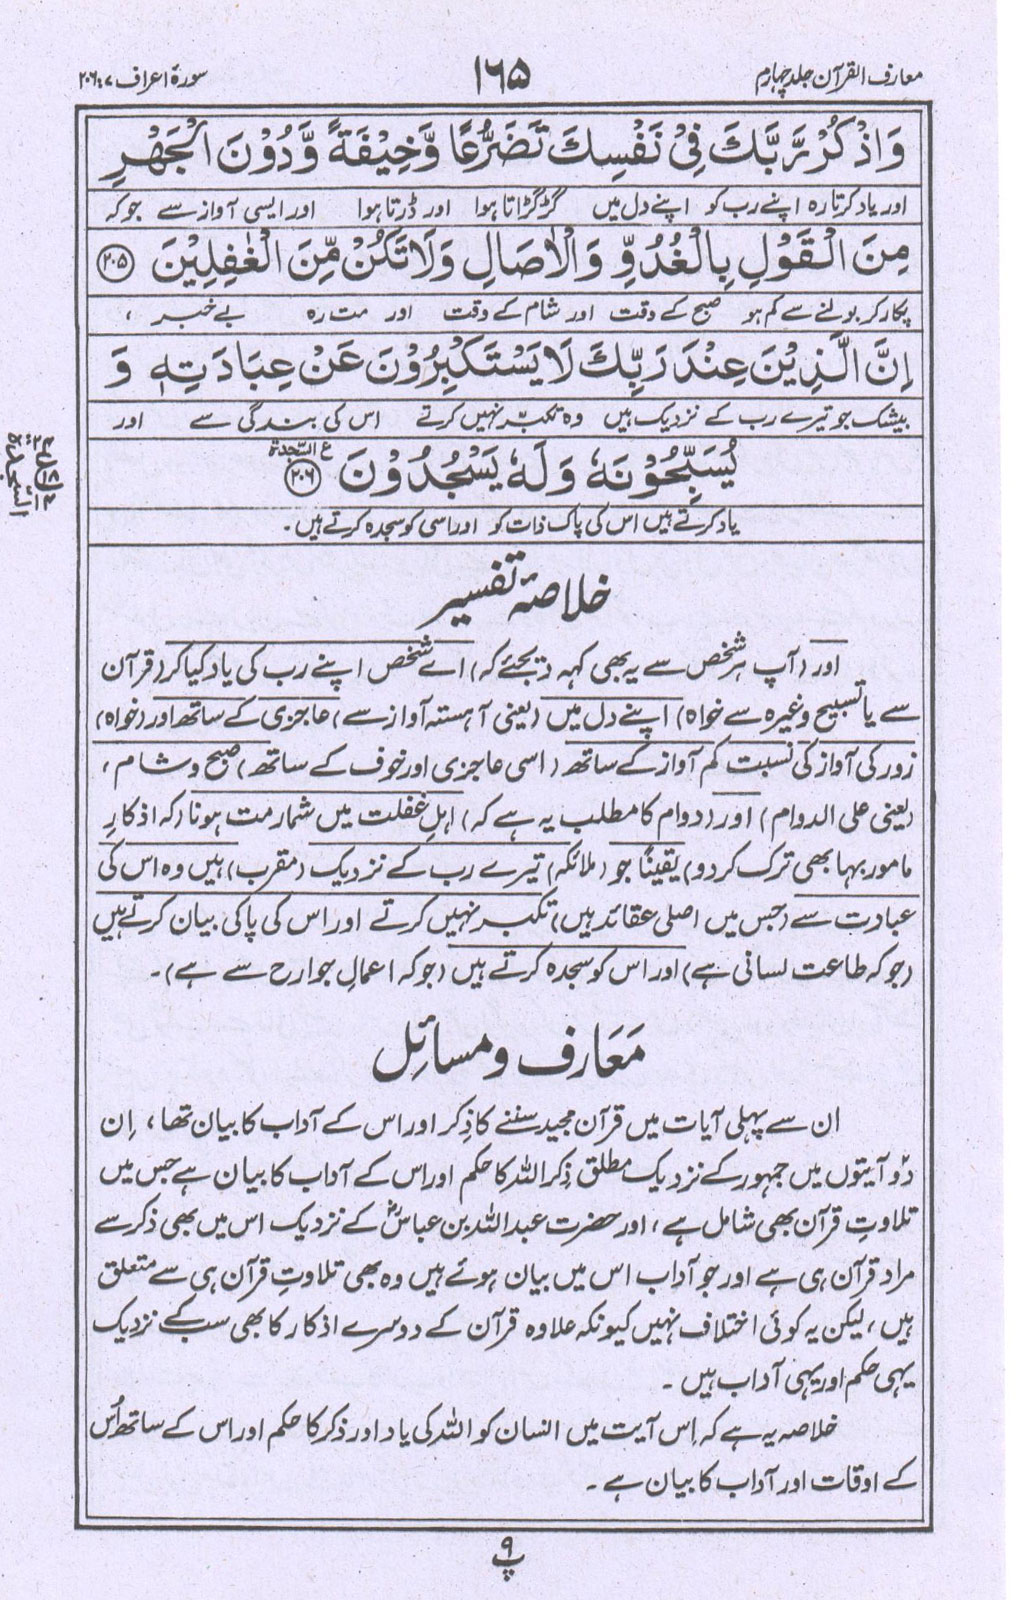 معارف القرآن جلد چہارم
۱۶۵
سورۂ اعراف ۷ : ۲۰۶
وَاذْكُرْ رَّبَّكَ فِيْ نَفْسِكَ تَضَرُّعًا وَّخِيْفَةً وَّدُوْنَ الْجَهْرِ
اور یاد کرتا رہ اپنے رب کو اپنے دل میں گڑگڑاتا ہوا اور ڈرتا ہوا اور ایسی آواز سے جو کہ
مِنَ الْقَوْلِ بِالْغُدُوِّ وَالْاٰصَالِ وَلَا تَكُنْ مِّنَ الْغٰفِلِيْنَ ۲۰۵
پکار کر بولنے سے کم ہو صبح کے وقت اور شام کے وقت اور مت رہ بے خبر ،
اِنَّ الَّذِيْنَ عِنْدَ رَبِّكَ لَا يَسْتَكْبِرُوْنَ عَنْ عِبَادَتِهٖ وَ
بیشک جو تیرے رب کے نزدیک ہیں وہ تکبر نہیں کرتے اس کی بندگی سے اور
يُسَبِّحُوْنَهٗ وَلَهٗ يَسْجُدُوْنَ ۲۰۶ ع السجدۃ
یاد کرتے ہیں اس کی پاک ذات کو اور اسی کو سجدہ کرتے ہیں ۔
السجدۃ
خلاصۂ تفسیر
اور (آپ ہر شخص سے یہ بھی کہہ دیجئے کہ) اے شخص اپنے رب کی یاد کیا کر (قرآن
سے یا تسبیح وغیرہ سے خواہ) اپنے دل میں (یعنی آہستہ آواز سے) عاجزی کے ساتھ اور (خواہ)
زور کی آواز کی نسبت کم آواز کے ساتھ (اسی عاجزی اور خوف کے ساتھ) صبح و شام ،
(یعنی علی الدوام) اور (دوام کا مطلب یہ ہے کہ) اہلِ غفلت میں شمار مت ہونا (کہ اذکارِ
مامور بہا بھی ترک کر دو) یقیناً جو (ملائکہ) تیرے رب کے نزدیک (مقرب) ہیں وہ اس کی
عبادت سے (جس میں اصلی عقائد ہیں) تکبر نہیں کرتے اور اس کی پاکی بیان کرتے ہیں
(جو کہ طاعت لسانی ہے) اور اس کو سجدہ کرتے ہیں (جو کہ اعمالِ جوارح سے ہے) ۔
مَعَارف و مسائِل
ان سے پہلی آیات میں قرآن مجید سننے کا ذِکر اور اس کے آداب کا بیان تھا ، اِن
دوؔ آیتوں میں جمہور کے نزدیک مطلق ذِکر اللہ کا حکم اور اس کے آداب کا بیان ہے جس میں
تلاوتِ قرآن بھی شامل ہے ، اور حضرت عبداللہ بن عباسؓ کے نزدیک اس میں بھی ذکر سے
مراد قرآن ہی ہے اور جو آداب اس میں بیان ہوئے ہیں وہ بھی تلاوتِ قرآن ہی سے متعلق
ہیں ، لیکن یہ کوئی اختلاف نہیں کیونکہ علاوہ قرآن کے دوسرے اذکار کا بھی سب کے نزدیک
یہی حکم اور یہی آداب ہیں ۔
خلاصہ یہ ہے کہ اِس آیت میں انسان کو اللہ کی یاد اور ذکر کا حکم اور اس کے ساتھ اُس
کے اوقات اور آداب کا بیان ہے ۔
۹
پ